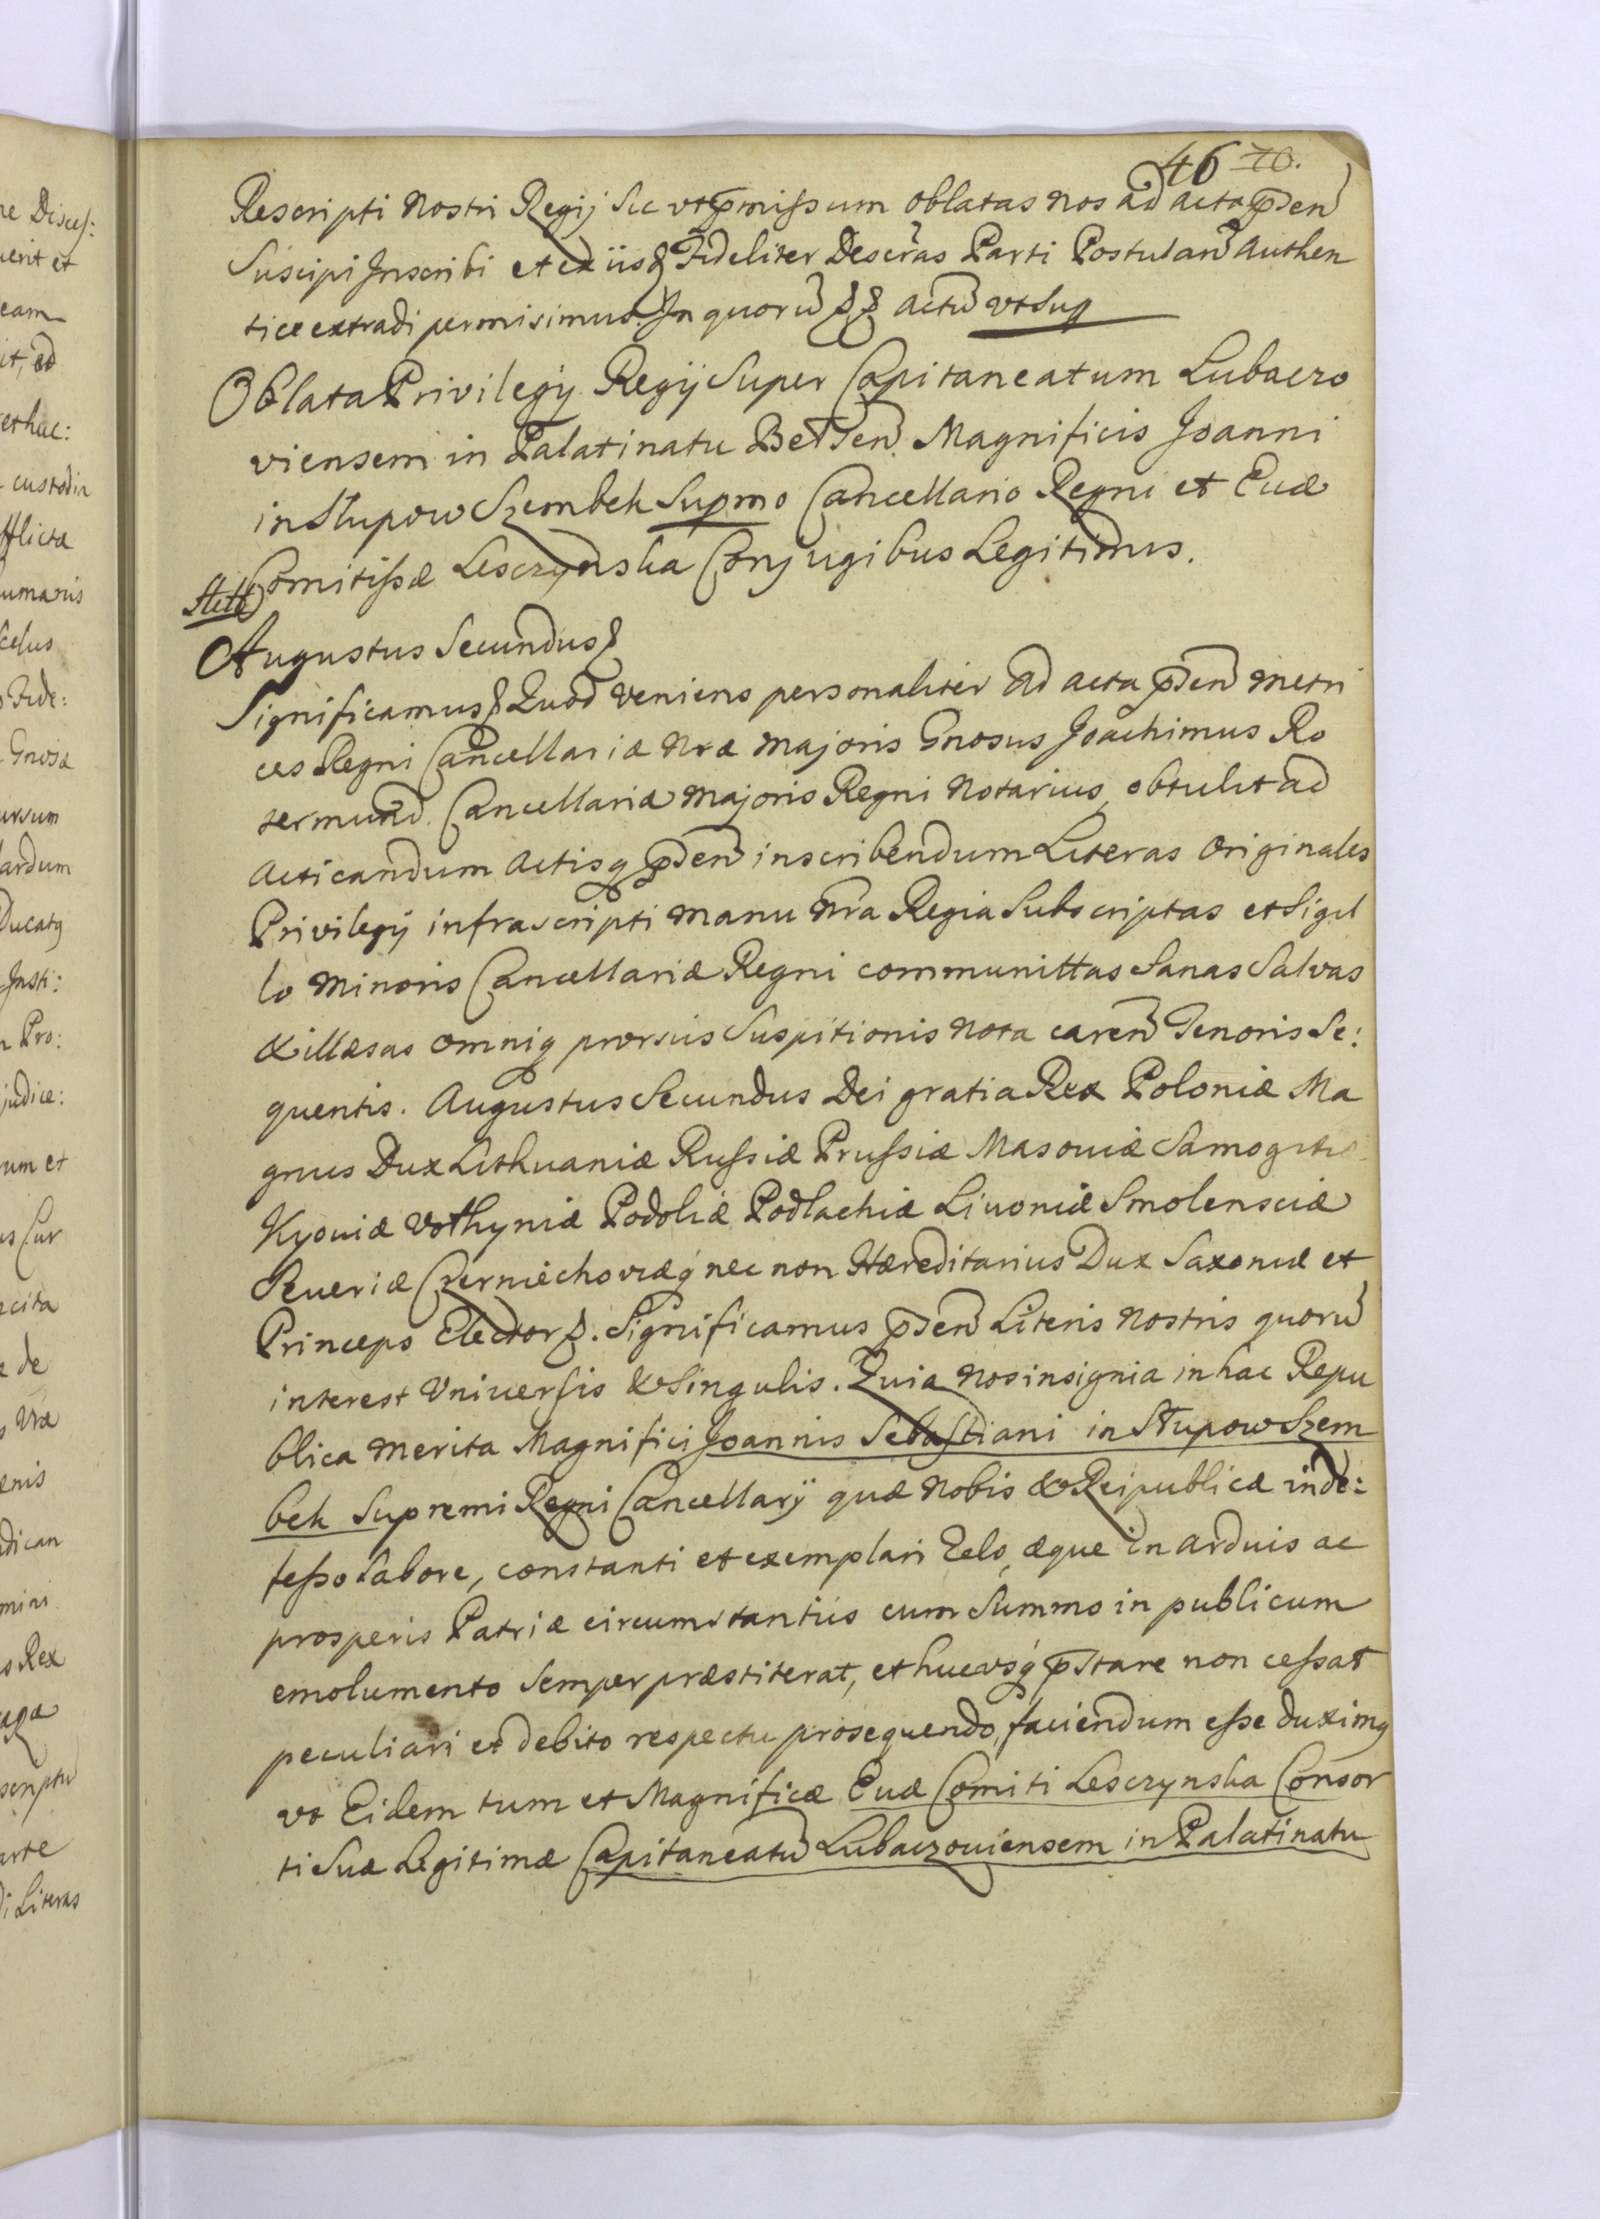 46 70.
Rescripti Nostri Regij Sic vt p̄missum oblatas nos ad acta p̄den̄
Suscipi Inscribi et ex iis Fideliter Descr̄as Parti Postulan̄ Authen
tice extradi permisimus. In quorū Actū vt Sup
Oblata Privilegÿ Regÿ Super Capitaneatum Lubaczo
viensem in Palatinatu Bełzen̄. Magnificis Joanni
in Słupow Szembek Supmo Cancellario Regni et Euæ
Comitissæ Lesczynska Conjugibus Legitimis.
Augustus Secundus
Significamus Quod veniens personaliter ad acta p̄den̄ Metri
ces Regni Cancellariæ Nræ Majoris Gnosus Joachimus Ro
sermund. Cancellariæ Majoris Regni Notarius, obtulit ad
Acticandum Actisq p̄den̄ inscribendum Literas Originales
Privilegÿ infrascripti Manu Nra Regia Subscriptas et Sigil
lo Minoris Cancellariæ Regni communittas Sanas Salvas
& illæsas omniq prorsus Suspitionis Nota caren̄ Tenoris Se:
quentis. Augustus Secundus Dei gratia Rex Poloniæ Ma
gnus Dux Lithuaniæ Russiæ Prussiæ Masouiæ Samogitiæ
Kyouiæ Vołhyniæ Podoliæ Podlachiæ Liuoniæ Smolensciæ
Seueriæ Czerniechoviæq nec non Hæreditarius Dux Saxoniæ et
Princeps Elector. Significamus p̄den̄ Literis Nostris quorū
interest Vniuersis & Singulis. Quia Nos insignia in hac Repu
blica Merita Magnifici Joannis Sebastiani in Słupow Szem
bek Supremi Regni Cancellarÿ quæ Nobis & Reipublicæ inde:
fesso Labore, constanti et exemplari Zelo, æque in Arduis ac
prosperis Patriæ circumstantiis cum Summo in publicum
emolumento Semper præstiterat, et hucvsq p̄stare non cessat
peculiari et debito respectu prosequendo, faciendum esse duximq
vt Eidem tum et Magnificæ Euæ Comiti Lesczynska Consor
ti Suæ Legitimæ Capitaneatū Lubaczouiensem in Palatinatu